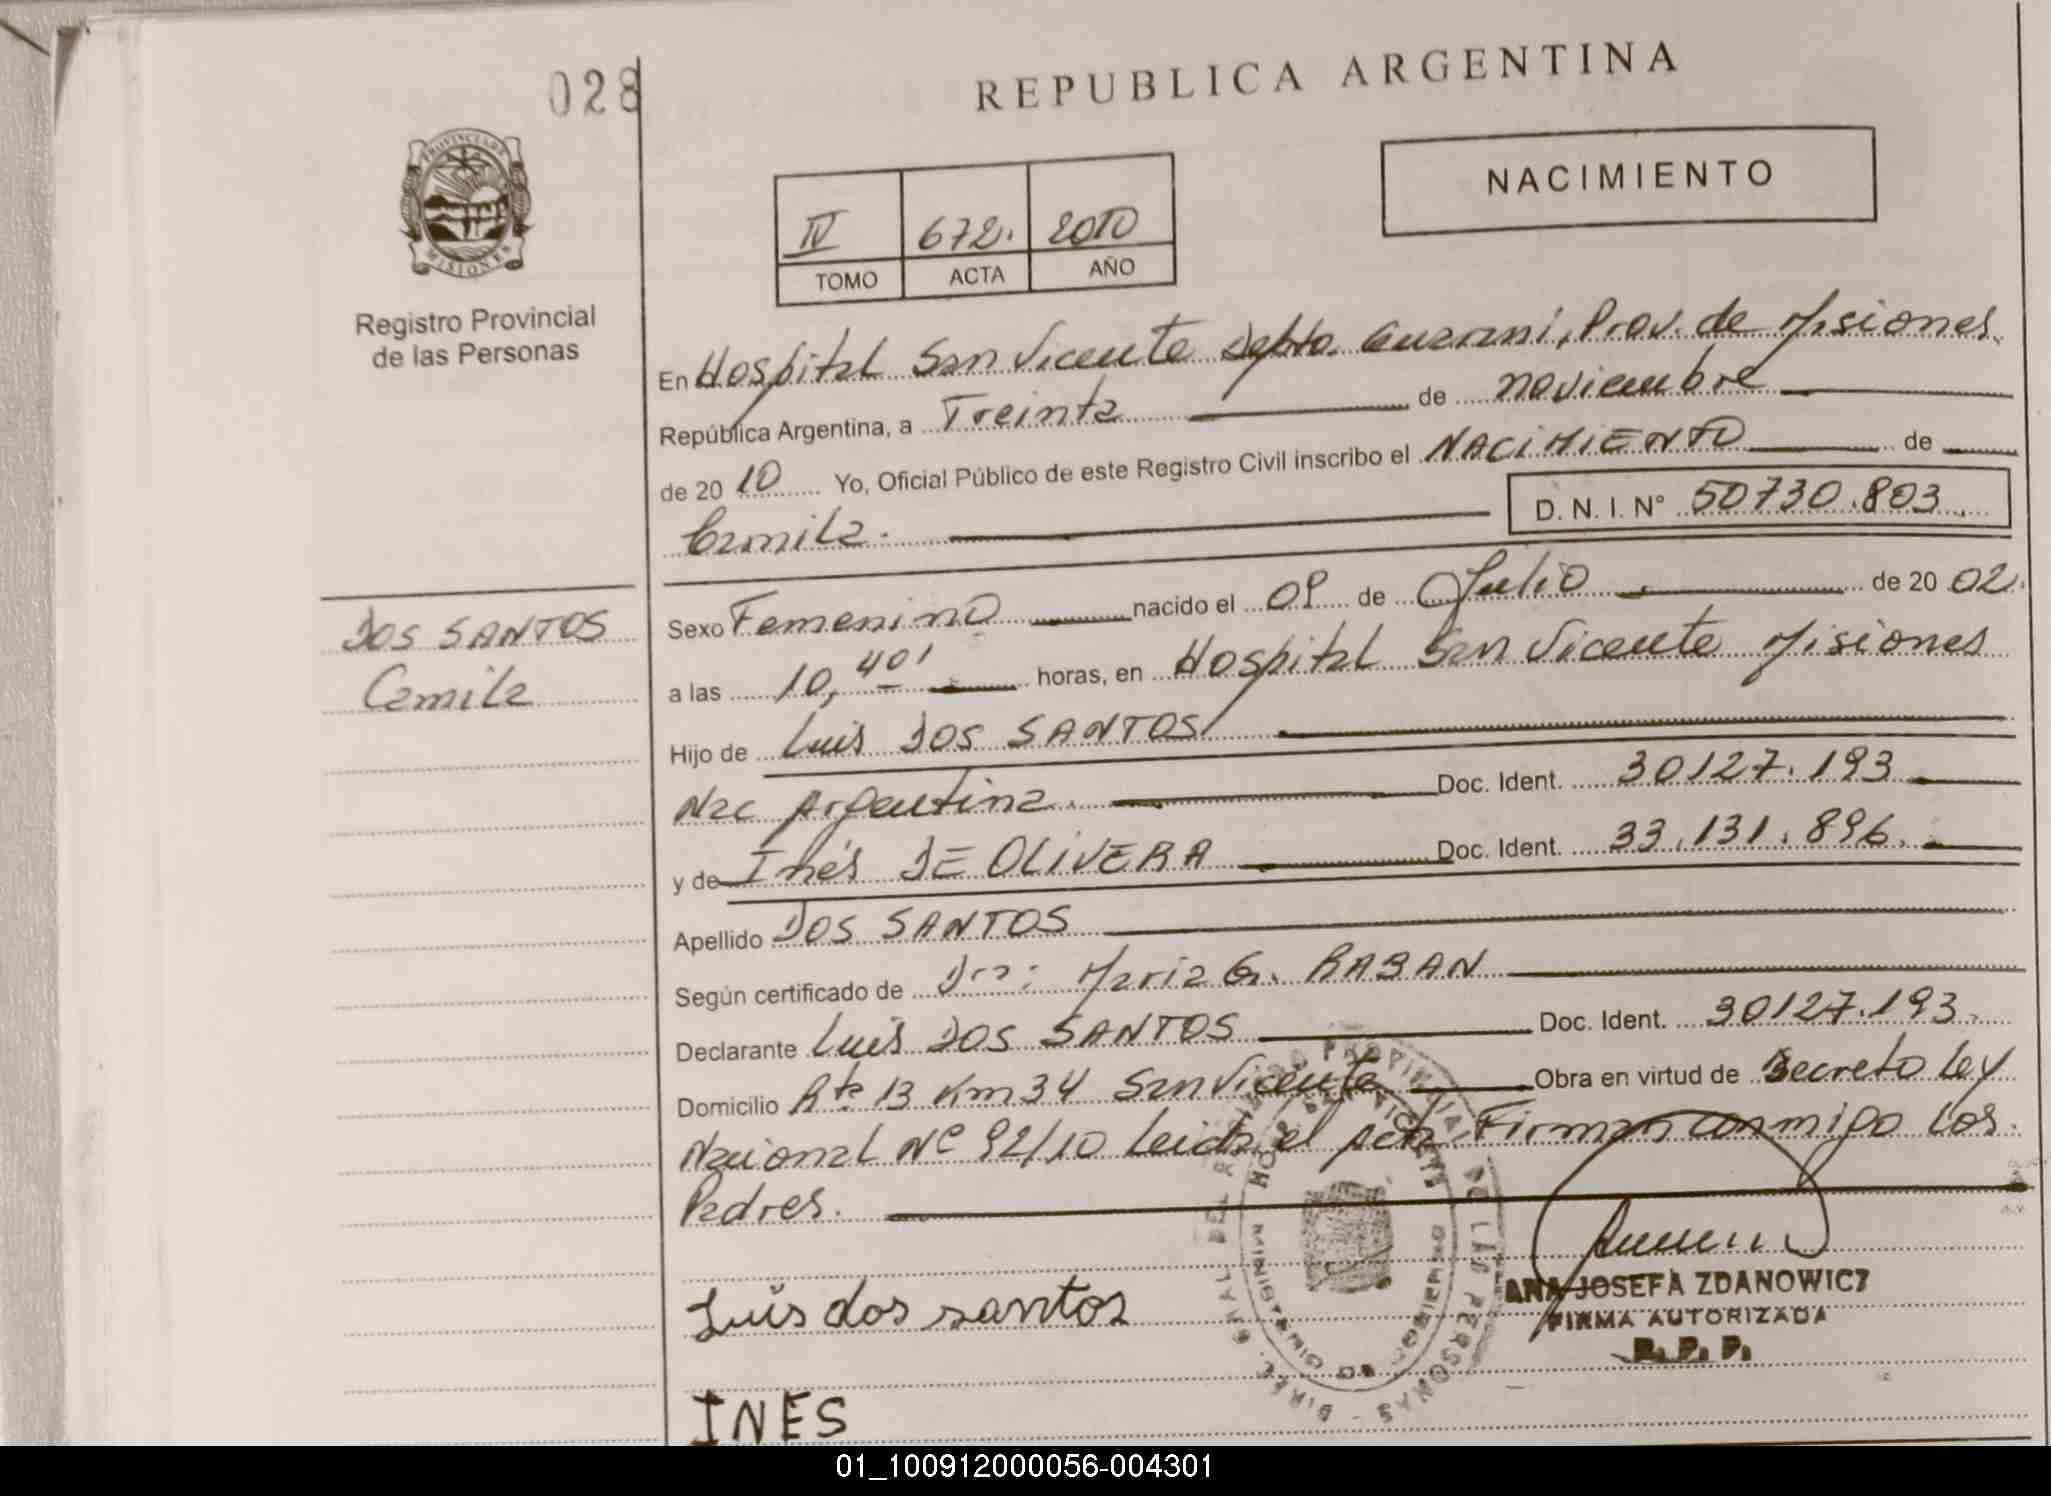 028
REPUBLICA ARGENTINA
PROVINCIA DE MISIONES
Registro Provincial
de las Personas
NACIMIENTO
IV 672. 2010
TOMO ACTA AÑO
En Hospital San Vicente Depto. Guarani, Prov. de Misiones.
República Argentina, a Treinta de noviembre
de 2010 Yo, Oficial Público de este Registro Civil inscribo el NACIMIENTO de
Camila. D. N. I. N° 50730.803.
DOS SANTOS
Camila
Sexo Femenino nacido el 09 de Julio de 2002.
a las 10,40' horas, en Hospital San Vicente Misiones
Hijo de Luis DOS SANTOS
Nac Argentina. Doc. Ident. 30127.193
y de Inés DE OLIVERA Doc. Ident. 33.131.896.
Apellido DOS SANTOS
Según certificado de Dra: Maria G. RABAN
Declarante Luis DOS SANTOS Doc. Ident. 30127.193.
Domicilio Rta 13 Km 34 San Vicente Obra en virtud de Decreto Ley
Nacional Nº 92/10 Leida el Acta, Firman conmigo Los
Padres.
Luis dos santos
ANA JOSEFA ZDANOWICZ
FIRMA AUTORIZADA
R. P. P.
INES
01_100912000056-004301